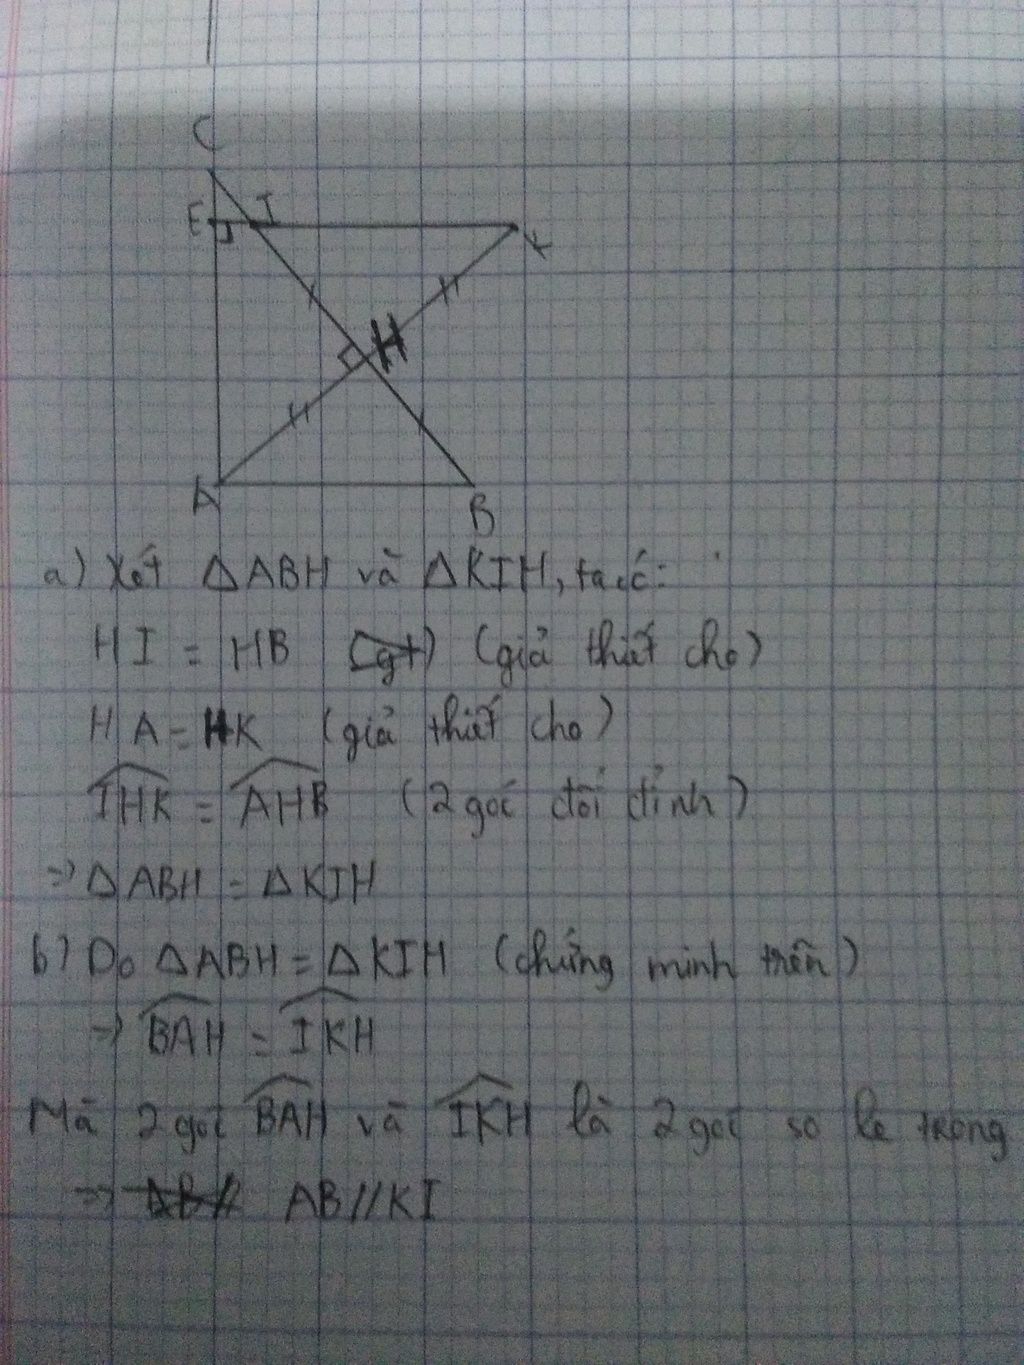 C
E I
K
H
A
B
a) Xét ΔABH và ΔKIH, ta có:
HI = HB (gt) (giả thiết cho)
HA = HK (giả thiết cho)
$\widehat{IHK}$ = $\widehat{AHB}$ (2 góc đối đỉnh)
=> ΔABH = ΔKIH
b) Do ΔABH = ΔKIH (chứng minh trên)
=> $\widehat{BAH}$ = $\widehat{IKH}$
Mà 2 góc $\widehat{BAH}$ và $\widehat{IKH}$ là 2 góc so le trong
=> AB // AB//KI